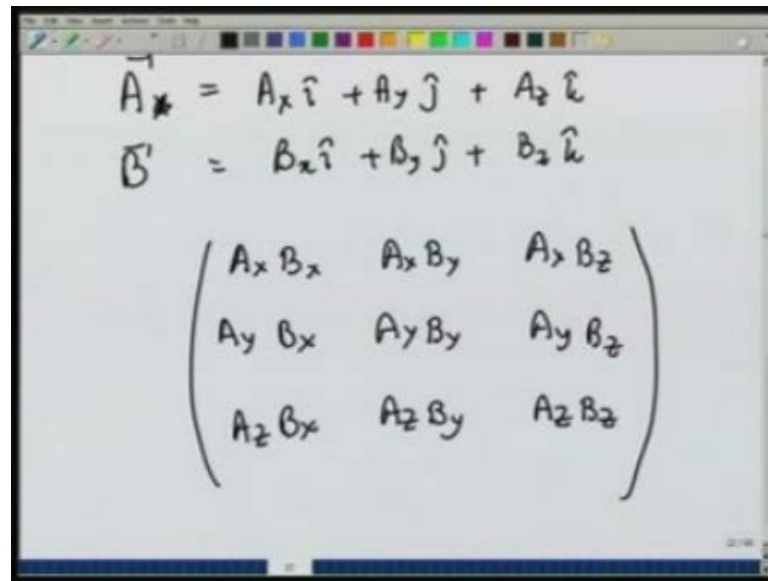 A⃗ = Aₓ î + A_y ĵ + A_z k̂
B⃗ = Bₓ î + B_y ĵ + B_z k̂
Aₓ Bₓ Aₓ B_y Aₓ B_z
A_y Bₓ A_y B_y A_y B_z
A_z Bₓ A_z B_y A_z B_z